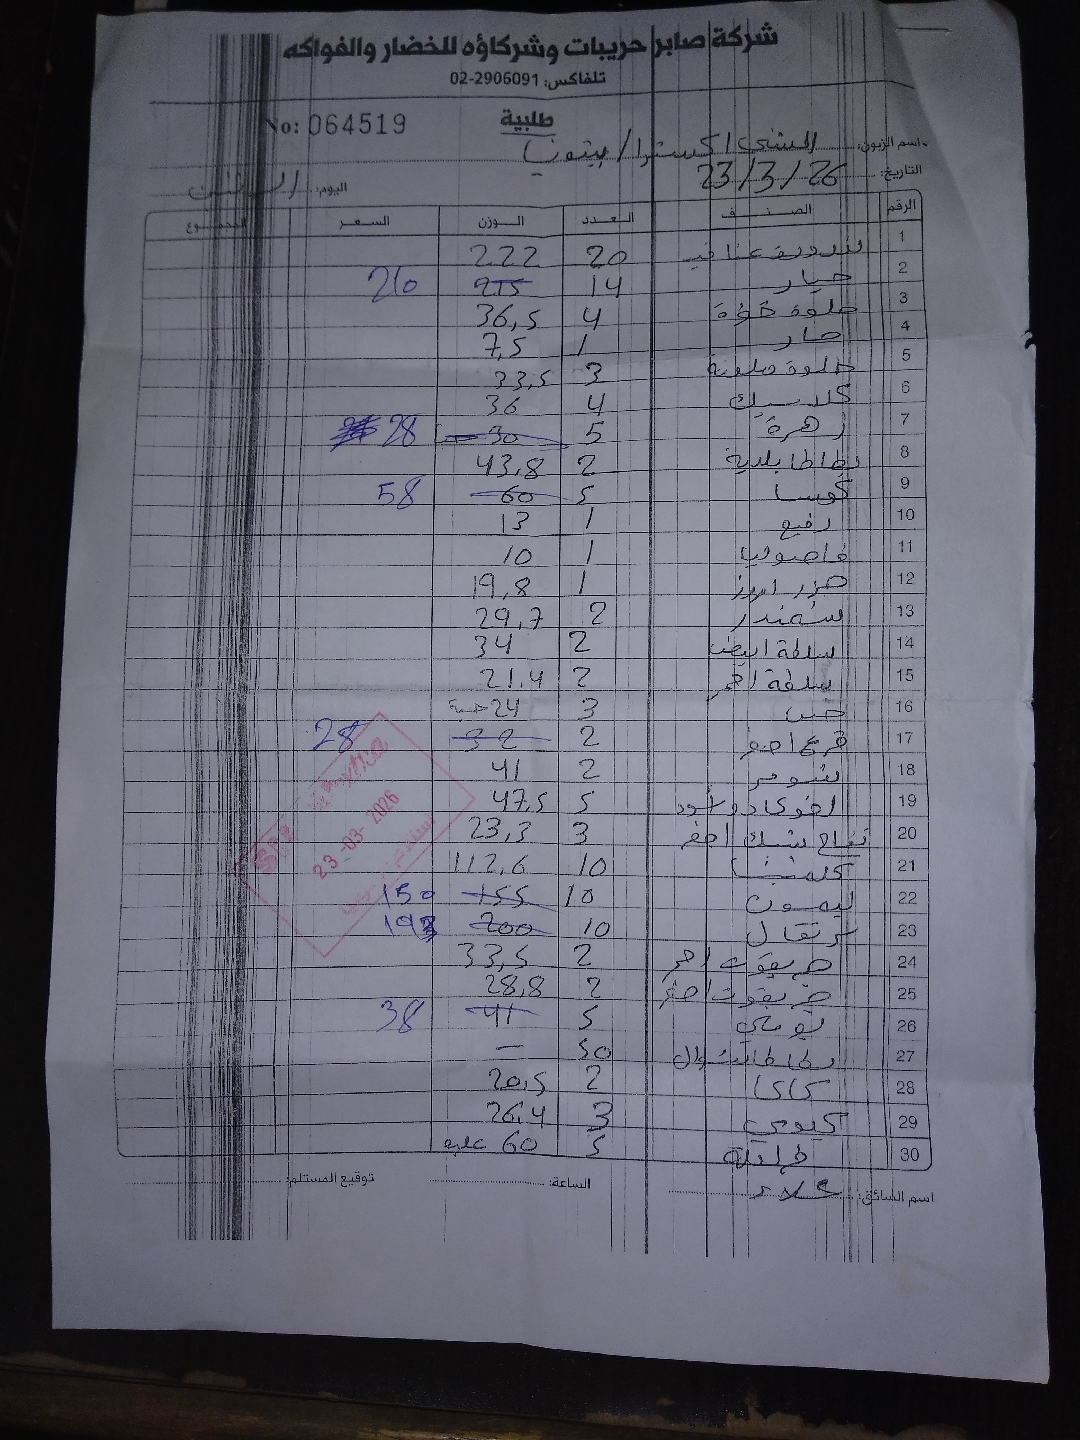 شركة صابر حريبات وشركاؤه للخضار والفواكه
تلفاكس: 02-2906091
طلبية
No: 064519
اسم الزبون: الشني اكسترا / بيتونيا
التاريخ: 23/3/26
اليوم: الاثنين
الرقم الصنف العدد الوزن السعر المجموع
1 بندورة عناقيد 20 222
2 خيار 14 215 210
3 حلوة 4 36,5
4 حار 1 7,5
5 حلوة ملونة 3 33,5
6 كلاسيك 4 36
7 زهرة 5 30 28
8 بطاطا بلدية 2 43,8
9 كوسا 5 60 58
10 رفيع 1 13
11 فاصوليا 1 10
12 جزر 1 19,8
13 شمندر 2 29,7
14 سلطة ابيض 2 34
15 سلطة احمر 2 21.4
16 خس 3 24 حبة
17 قرع اصفر 2 32 28
18 شومر 2 41
19 افوكادو اسود 5 47,5
20 تفاح سنك اخضر 3 23,3
21 كلمنتينا 10 112,6
22 ليمون 10 155 150
23 برتقال 10 200 193
24 جريفوت احمر 2 33,5
25 جريفوت اخضر 2 28,8
26 بوملي 5 41 38
27 بطاطا شوال 50 —
28 كاكا 2 20,5
29 كيوي 3 26,4
30 فراولة 5 60 علبة
23-03-2026
اسم السائق: علاء
الساعة:
توقيع المستلم: